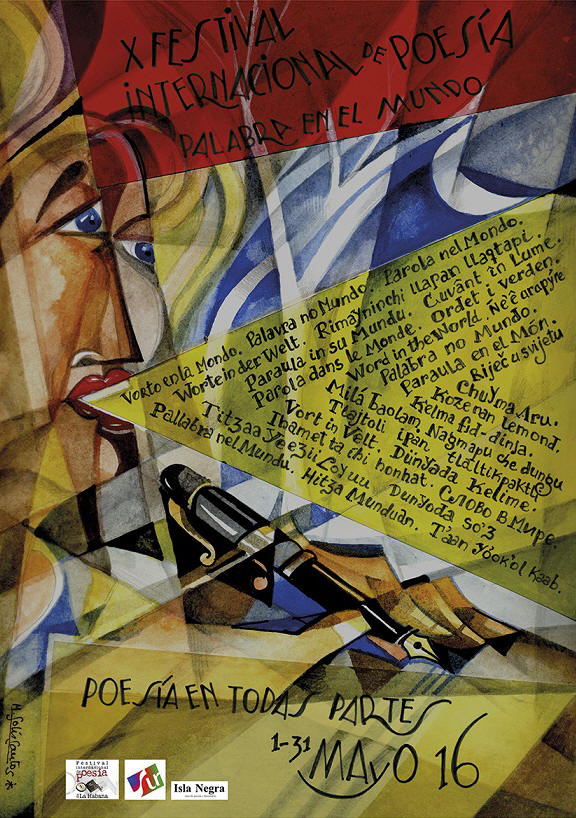 X FESTIVAL
INTERNACIONAL DE POESÍA
PALABRA EN EL MUNDO
Vorto en la Mondo. Palavra no Mundo. Parola nel Mondo.
Worte in der Welt. Rimayninchi llapan llaqtapi.
Paraula in su Mundu. Cuvânt în Lume.
Parola dans le Monde. Ordet i verden.
Word in the World. Ñe'ê arapýre
Palabra no Mundo.
Paraula en el Món.
Riječ u svijetu
Chuyma Aru.
Kozenan Lemond.
Kelma fid-dinja.
Milá baolam. Nagmapu che dungu
Tlajtoli ipan tlaltikpaktli
Vort in Velt. Dünyada Kelime.
Titzaa yeezii Loyuu
Ihamet ta chi honhat. Слово в Мире.
Pallabra nel Mundu. Dunyoda so'z
Hitza Munduan. T'aan yóok'ol kaab.
POESÍA EN TODAS PARTES
1-31 MAYO 16
Festival
internacional
de Poesía
de La Habana
Isla Negra